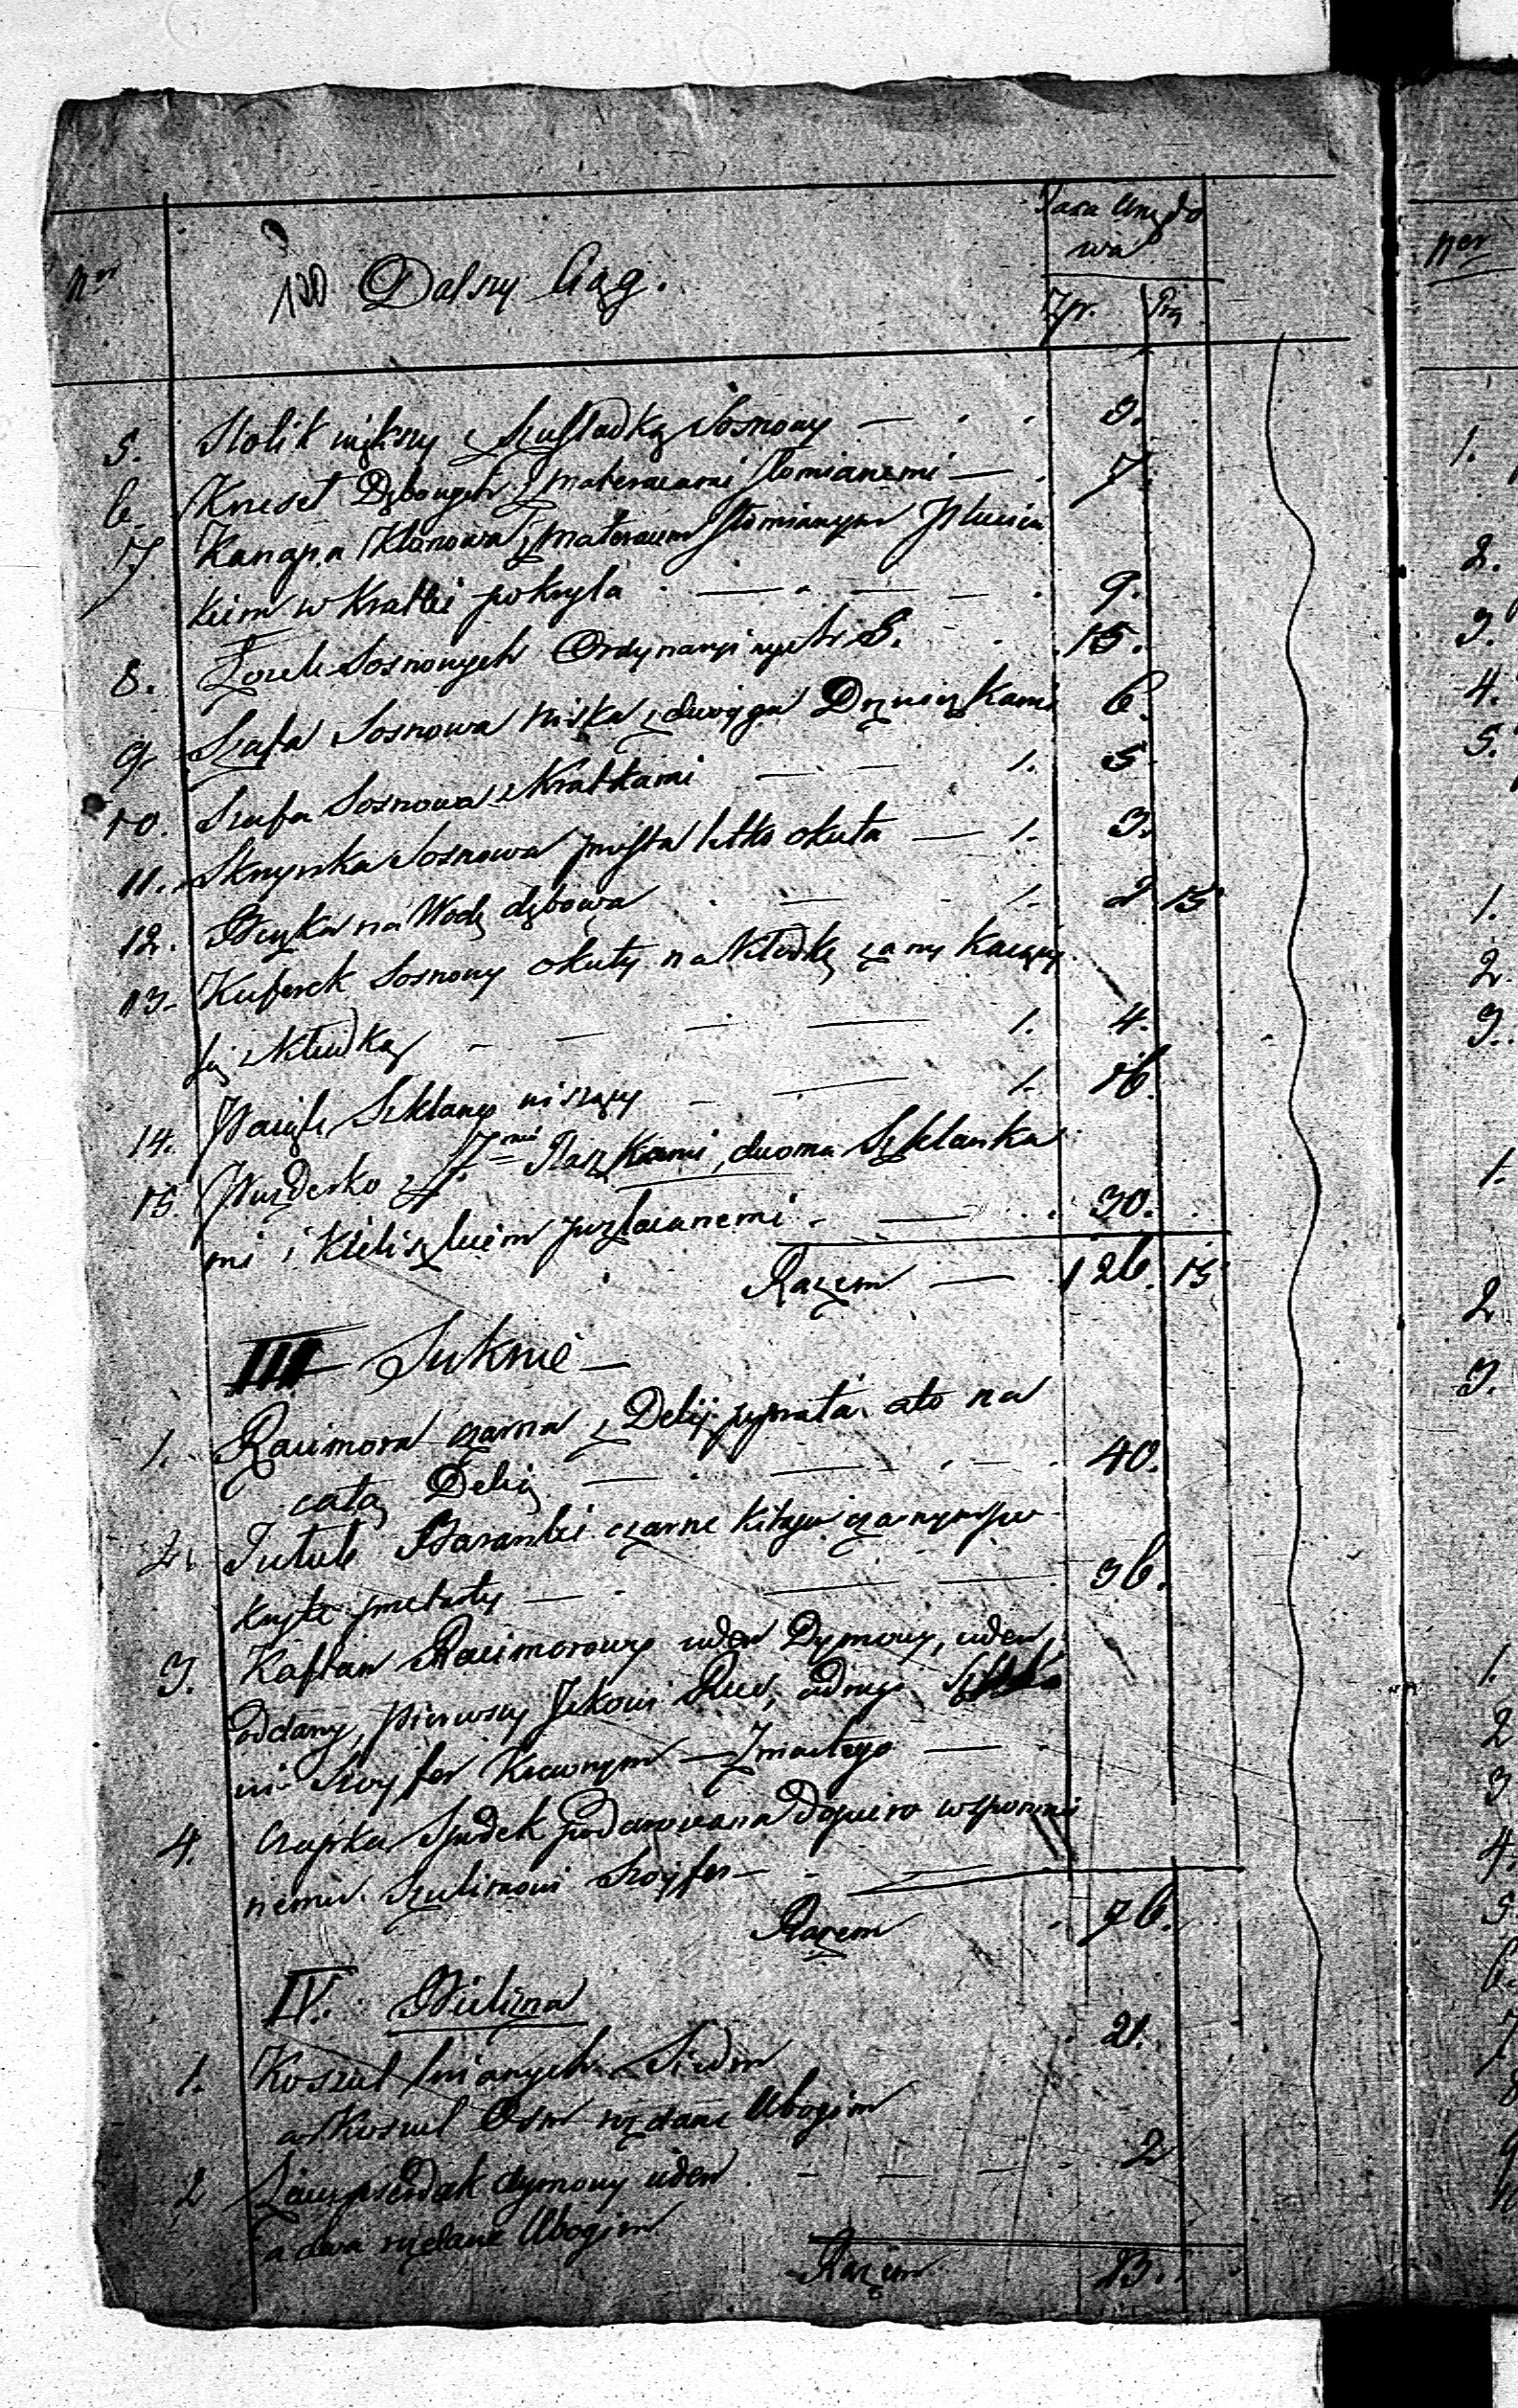 Taxa Urzędo
wa
Nr 120 Dalszy Ciąg.
Złp. Gr.
5. Stolik większy z Szufladką Sosnowy — 3.
6. Krzeseł Dębowych z materacami słomianemi — 7.
7. Kanapa Klonowa z materacem słomianym
kiem w Kratki pokryta — 9.
8. Łożek Sosnowych Ordynaryinych 3. 15.
9. Szafa Sosnowa niska z dwoyga Drzwiczkami 6.
10. Szafa Sosnowa z Kratkami — 1. 5.
11. Skrzynka Sosnowa prosta letko okuta — 1. 3.
12. Beczka na Wodę dębowa — 1. 2 15
13. Kuferek Sosnowy okuty na Kłudkę zamykaiący
się Kłudką — 1. 4.
14. Szklany wiszący — 1. 16.
15. Puzderko z 7mi Flaszkami, dwoma Szklanka
mi i Kieliszkiem pozłacanemi — 30.
Razem — 126. 15
III Suknie —
1. Racimora czarna z Delij wyprata ato na
całą Delią — 40.
2. Tutub Baranki czarne kitayem czarnym po
kryte przetarty — 36.
3. Kaftan Racimorowy ieden Dymowy, ieden
oddany, pierwszy Jckowi Rus, adrugi
wi Szoyfer Krewnym — Zmarłego —
4. Czapka Spodek podarowana dopiero wspomni
nemu Szulimowi Szoyfer —
Razem 76.
IV. Bielizna
1. Koszul lnianych Siedm 21.
a Koszul Osm wydane Ubogim
2 dymowy ieden — 2
a dwa wydane Ubogim
Razem 23.
Ner
1.
2.
3.
4.
5.
1.
2.
3.
1.
2
3.
1.
2
3
4.
5.
6.
7
8
9